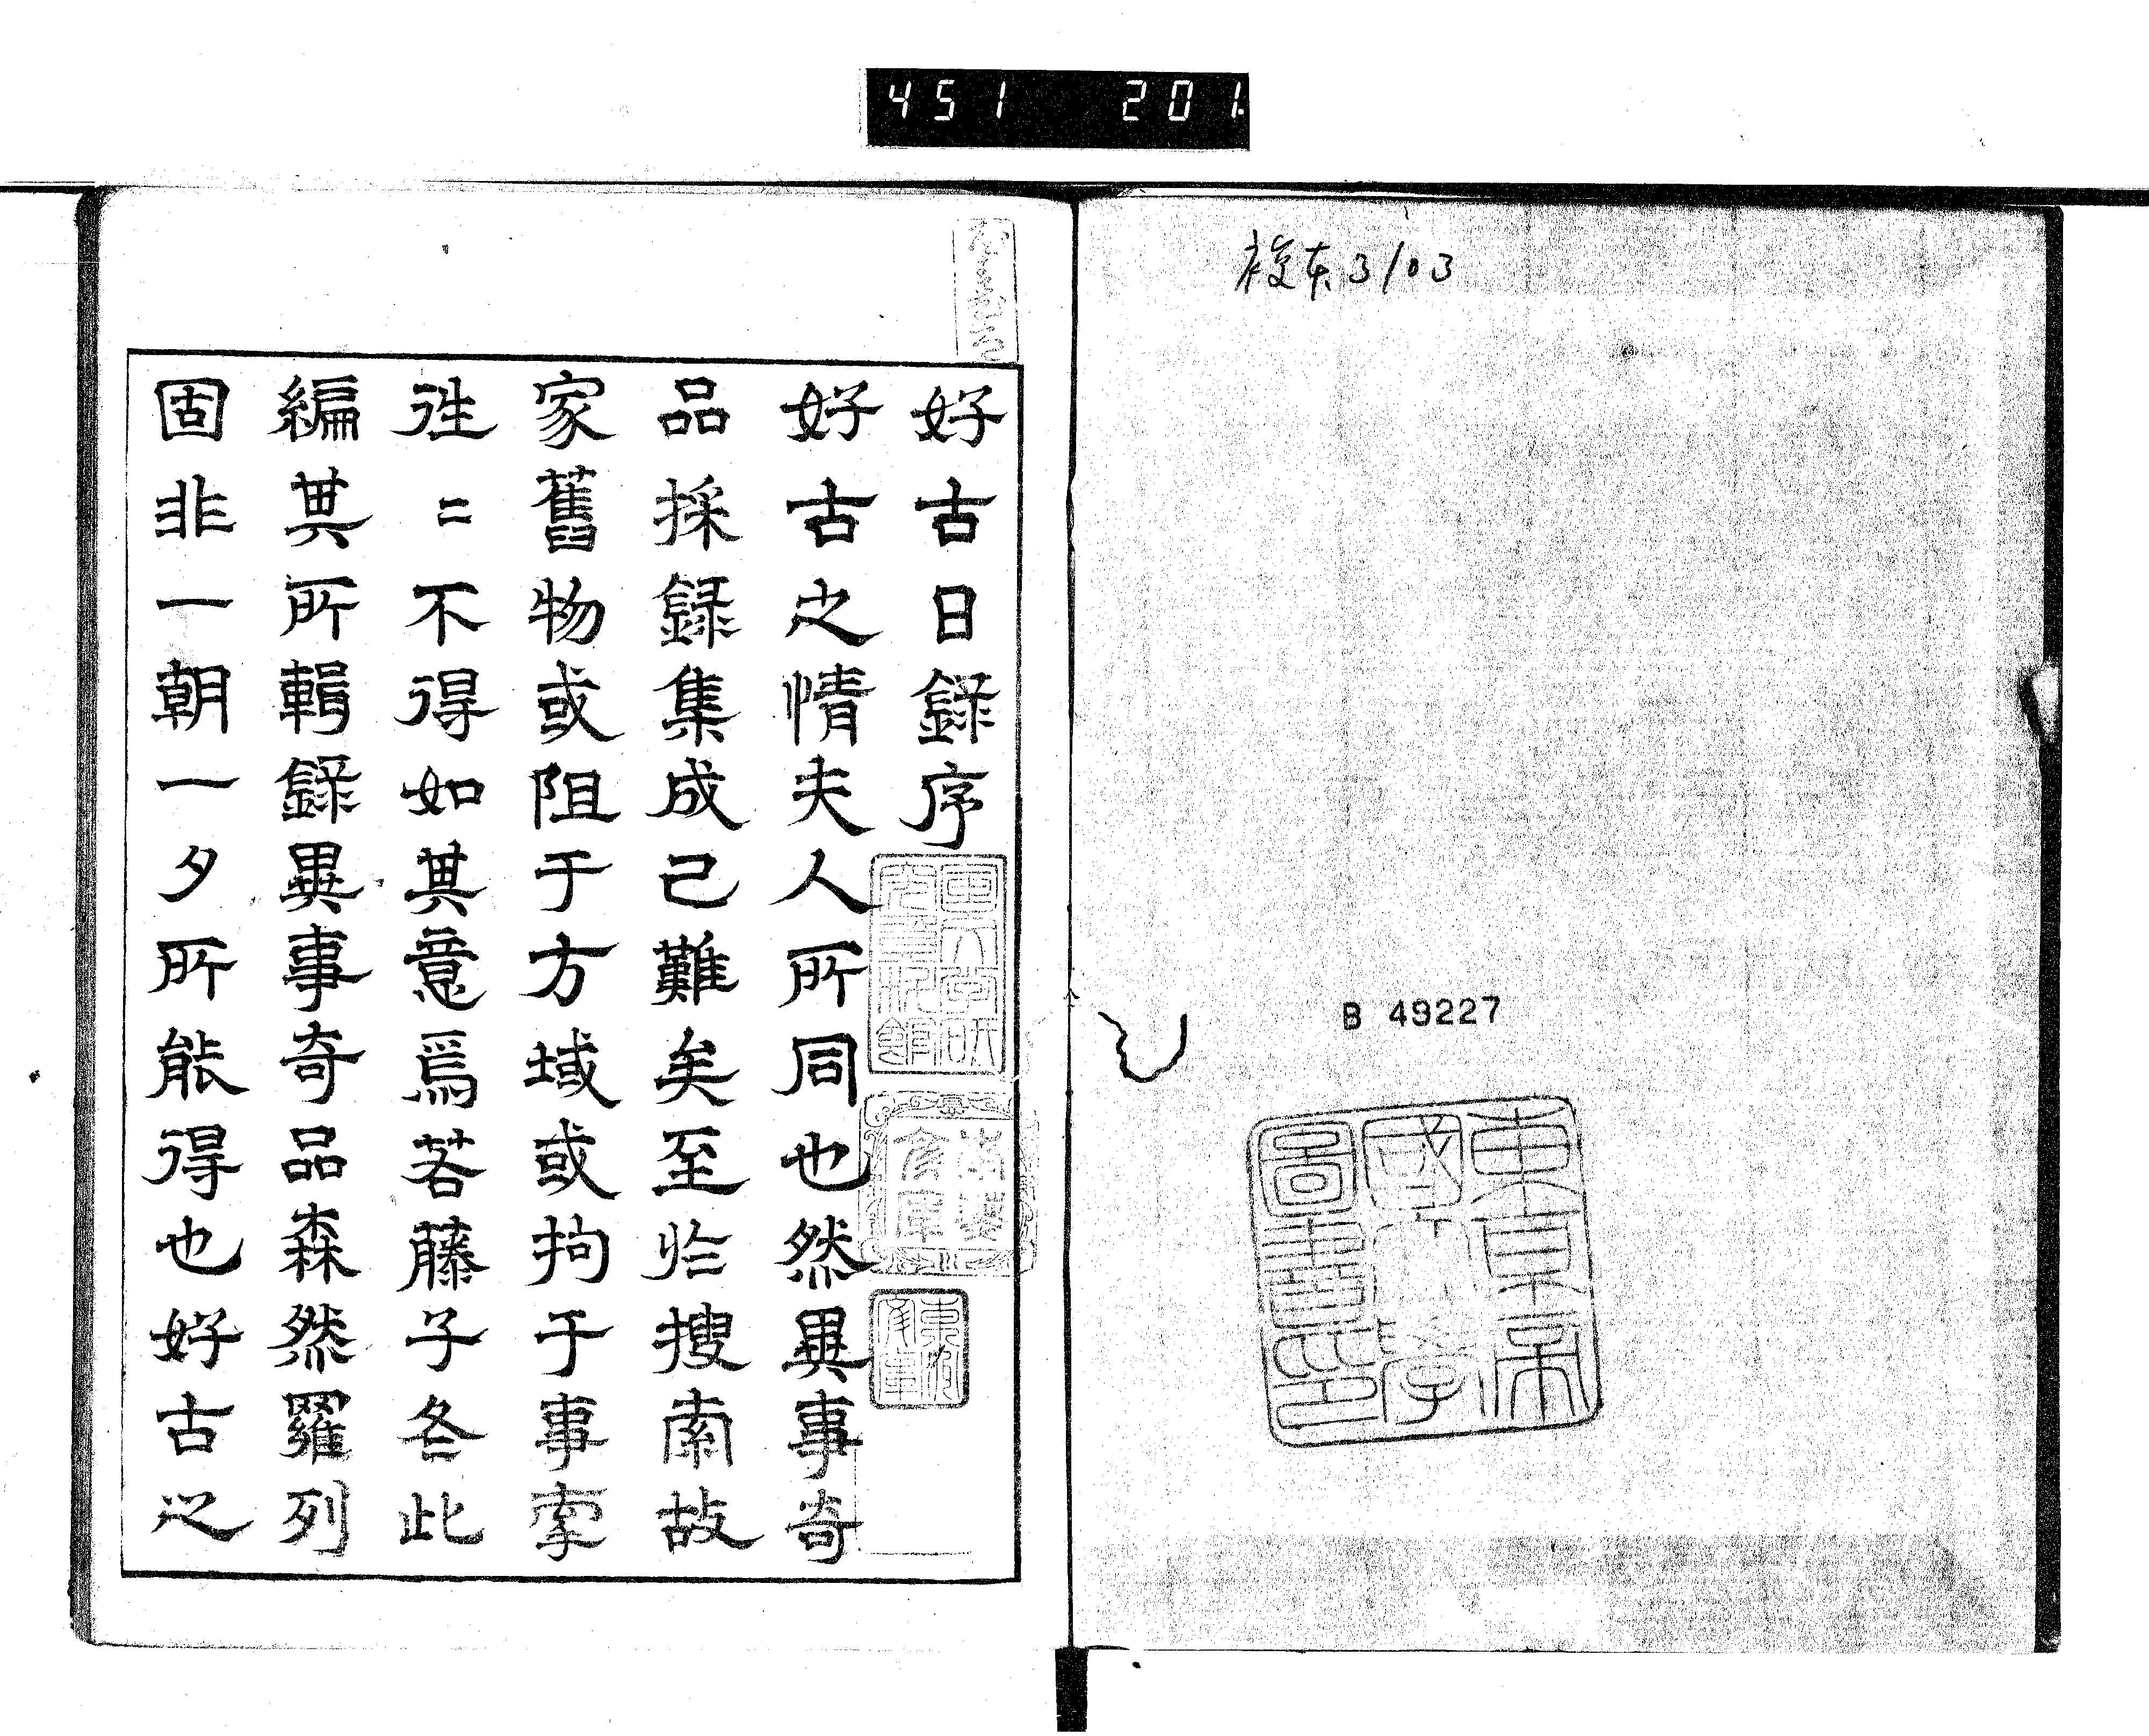 451 201.
複本3103
B 49227
東京帝
國大學
圖書印
好古日録序
好古之情夫人所同也然異事奇
品採録集成已難矣至於搜索故
家舊物或阻于方域或拘于事索
徃〻不得如其意焉若藤子冬此
編其所輯録異事奇品森然羅列
固非一朝一夕所能得也好古之